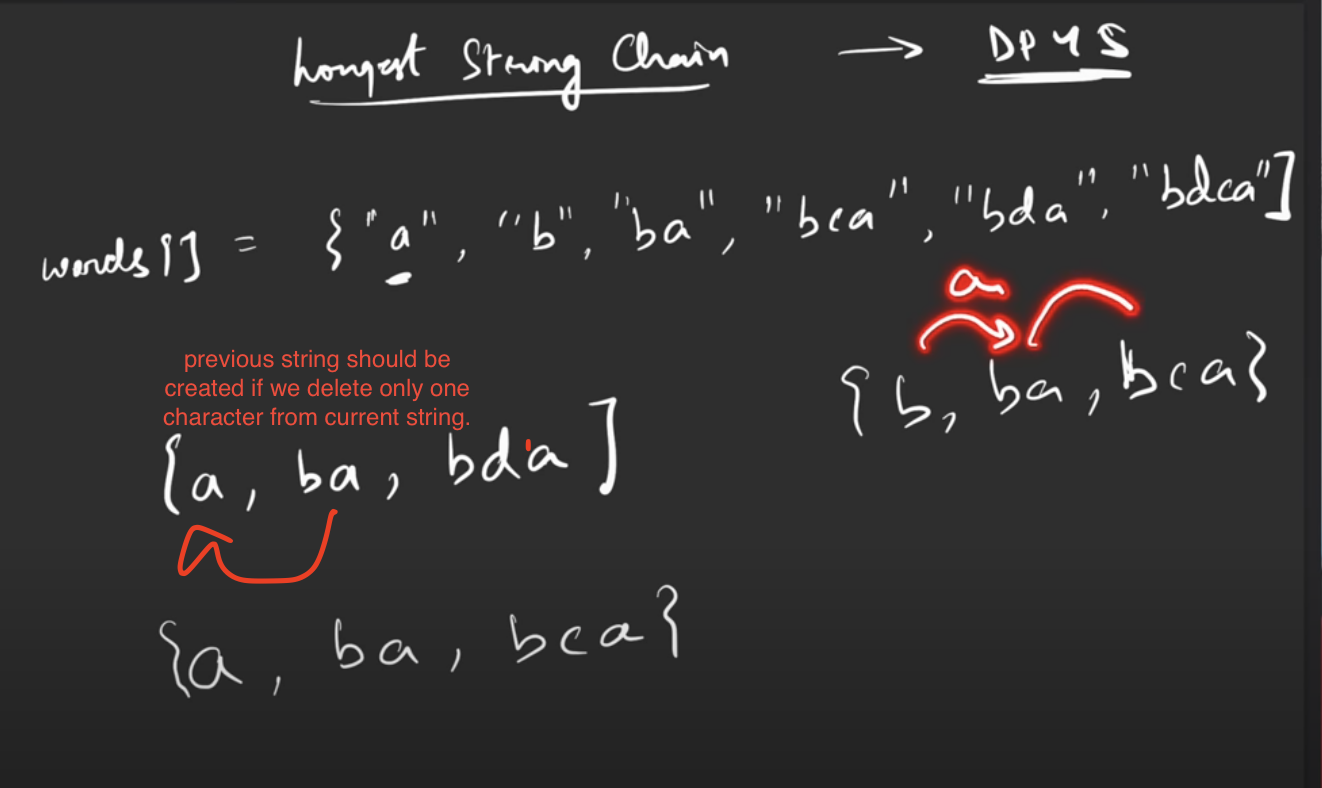 Longest String Chain → DP 45
words[] = {"a", "b", "ba", "bca", "bda", "bdca"]
a
{b, ba, bca}
previous string should be
created if we delete only one
character from current string.
{a, ba, bda]
{a, ba, bca}